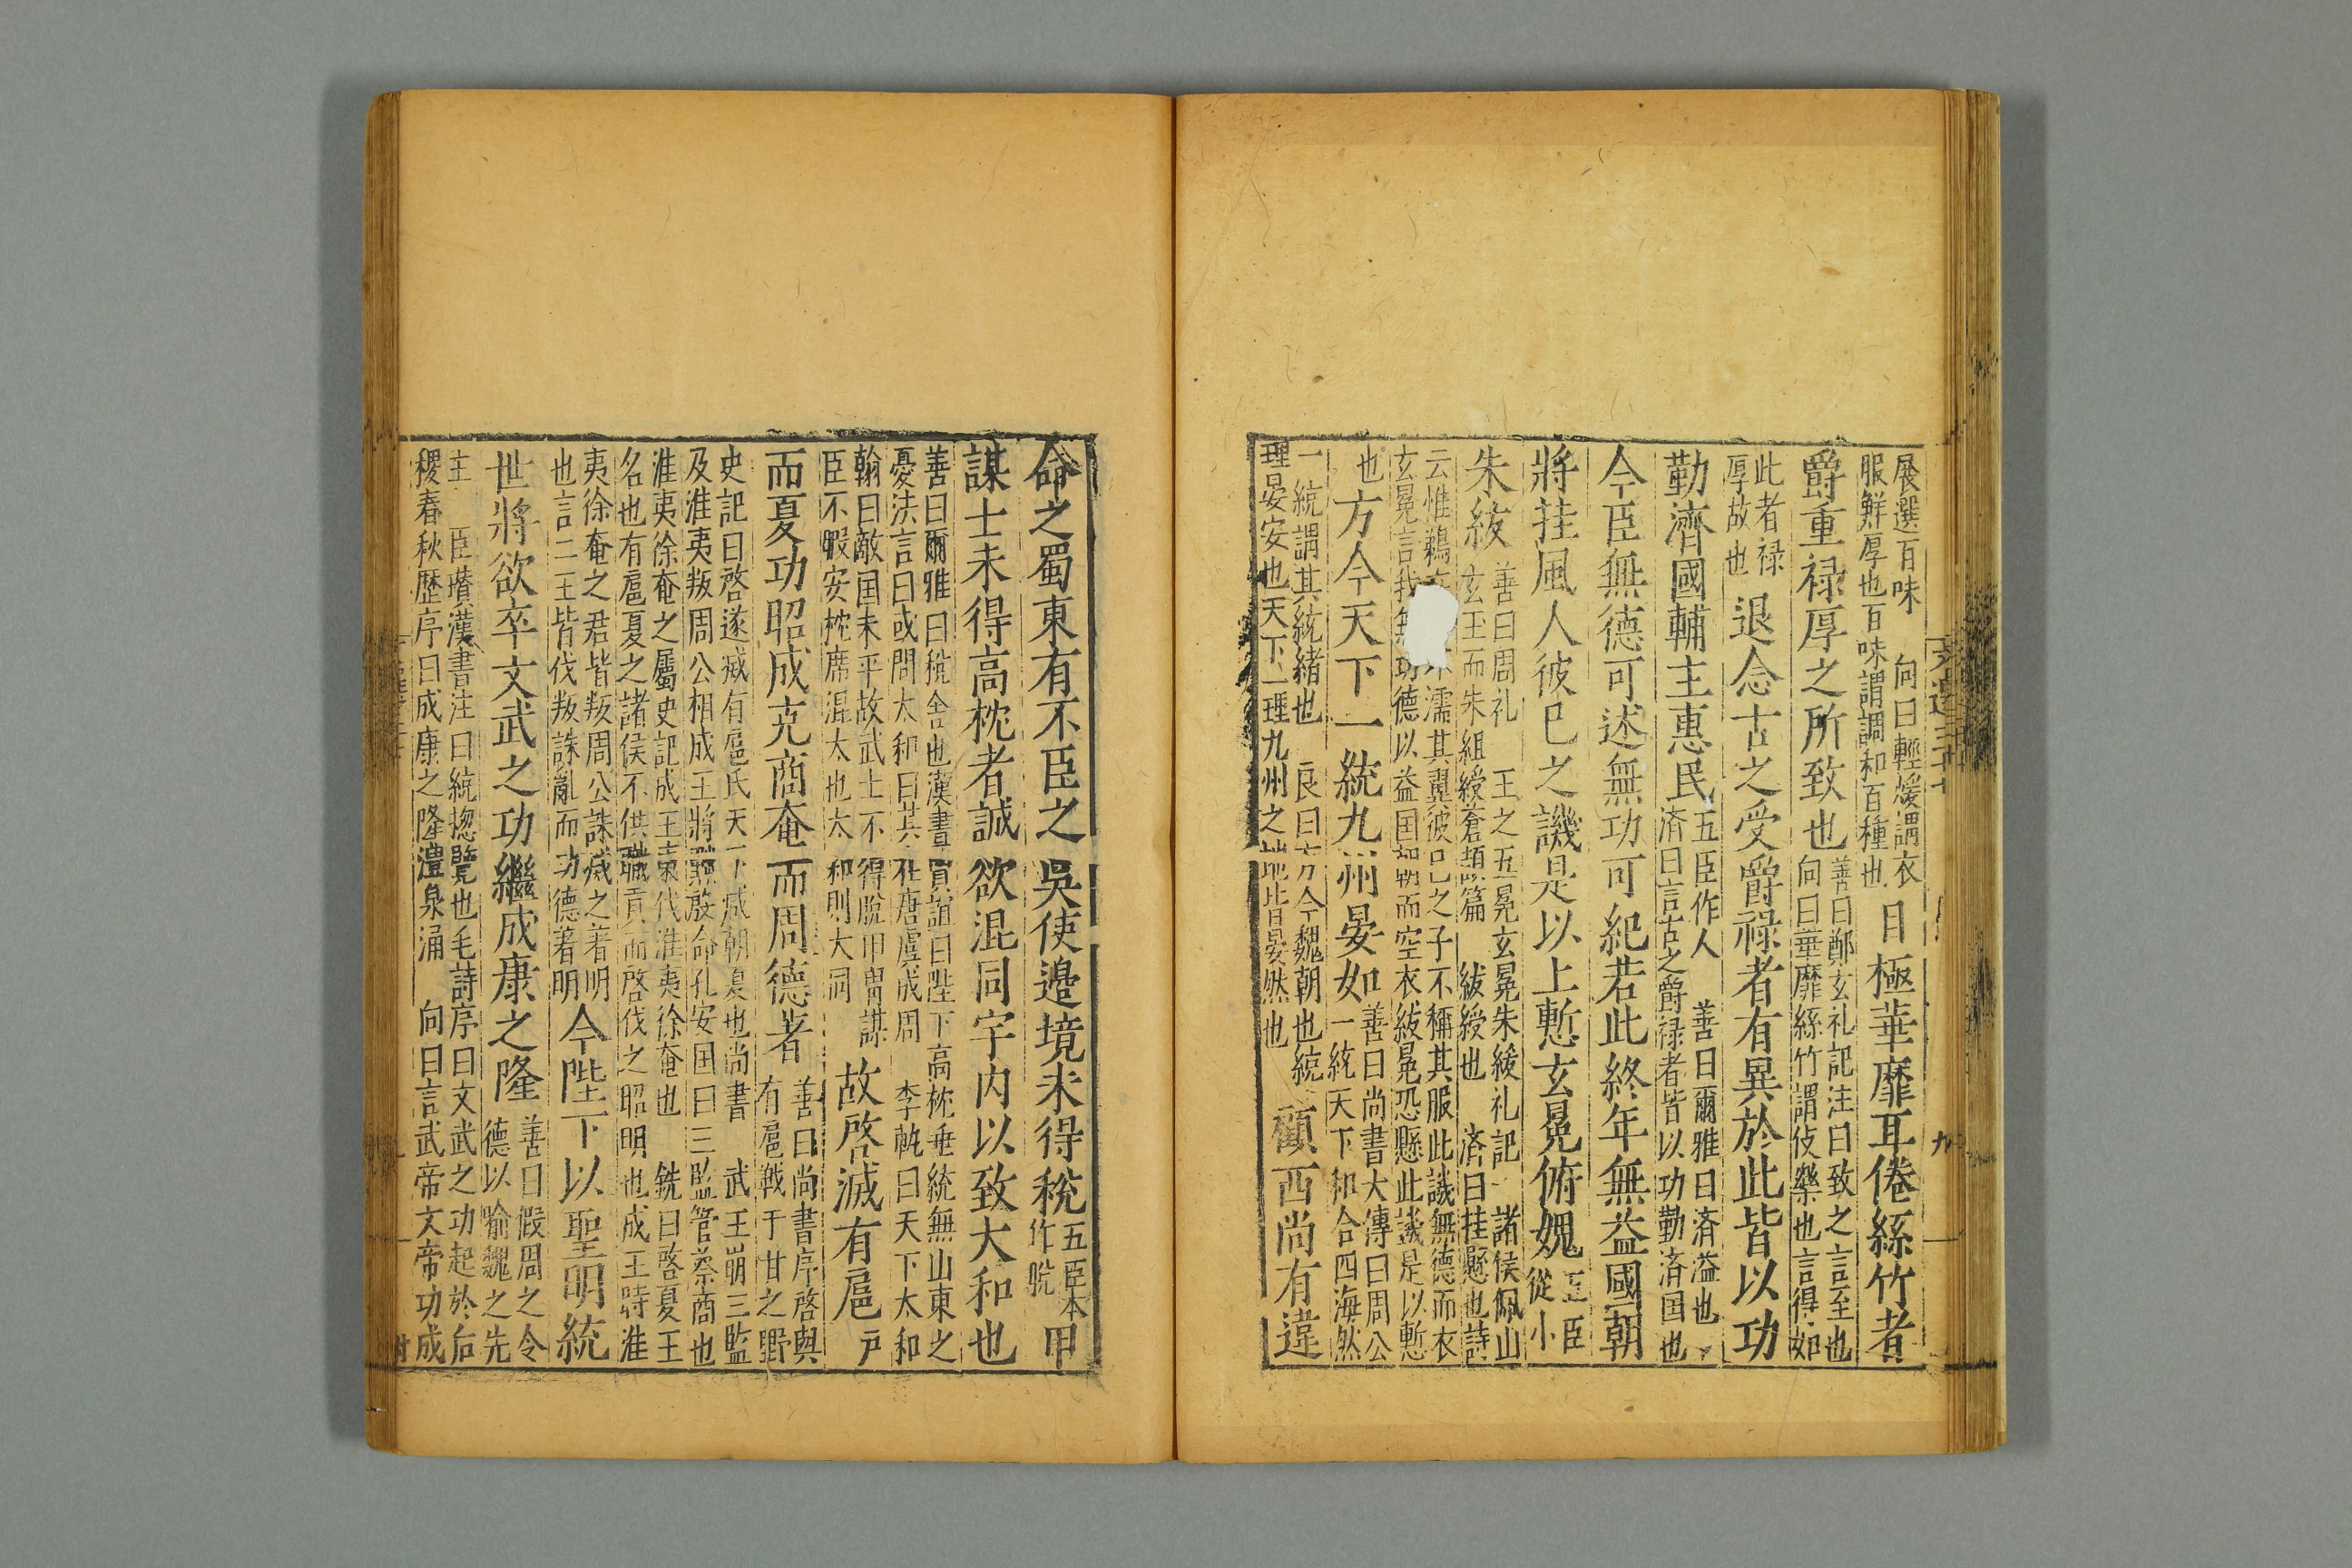 展選百味　向曰輕煖謂衣
服鮮厚也百味謂調和百種也
目極華靡耳倦絲竹者
爵重禄厚之所致也
善曰鄭玄礼記注曰致之言至也
向曰華靡絲竹謂伎樂也言得如
此者禄
厚故也
退念古之受爵禄者有異於此皆以功
勤濟國輔主惠民
五臣作人　善曰爾雅曰済益也
済曰言古之爵禄者皆以功勤済国也
今臣無德可述無功可紀若此終年無益國朝
將挂風人彼己之譏是以上慙玄冕俯愧
五臣
從小
朱紱
善曰周礼　王之五冕玄冕朱綬礼記　諸侯佩山
玄玉而朱組綬蒼頡篇　紱綬也　済曰挂懸也詩
云惟鵜　濡其翼彼己之子不稱其服此譏無德而衣
玄冕言我無　功德以益国朝而空衣紱冕恐懸此譏是以慙
也
方今天下一統九州晏如
善曰尚書大傳曰周公
一統天下和合四海然
一統謂其統緒也　良曰方今魏朝也統
理晏安也天下一理九州之地皆晏然也
顧西尚有違
命之蜀東有不臣之吳使邊境未得稅
五臣本
作脫
甲
謀士未得高枕者誠欲混同宇内以致大和也
善曰爾雅曰稅舍也漢書賈誼曰陛下高枕垂統無山東之
憂法言曰或問太和曰其在唐虞成周　李軌曰天下太和
翰曰敵国未平故武士不得脫甲冑謀
臣不暇安枕席混太也太和則大同
故啓滅有扈
戸
而夏功昭成克商奄而周德著
善曰尚書序啓與
有扈戰于甘之野
史記曰啓遂滅有扈氏天下咸朝夏也尚書　武王崩三監
及淮夷叛周公相成王將黜殷命孔安国曰三監管蔡商也
淮夷徐奄之屬史記成王東代淮夷徐奄也　銑曰啓夏王
名也有扈夏之諸侯不供職貢而啓伐之昭明也成王時淮
夷徐奄之君皆叛周公誅滅之著明
也言二王皆伐叛誅亂而功德著明
今陛下以聖明統
世將欲卒文武之功繼成康之隆
善曰假周之令
德以喻魏之先
主　臣瓚漢書注曰統揔覽也毛詩序曰文武之功起於后
稷春秋歷序曰成康之隆澧泉涌　向曰言武帝文帝功成